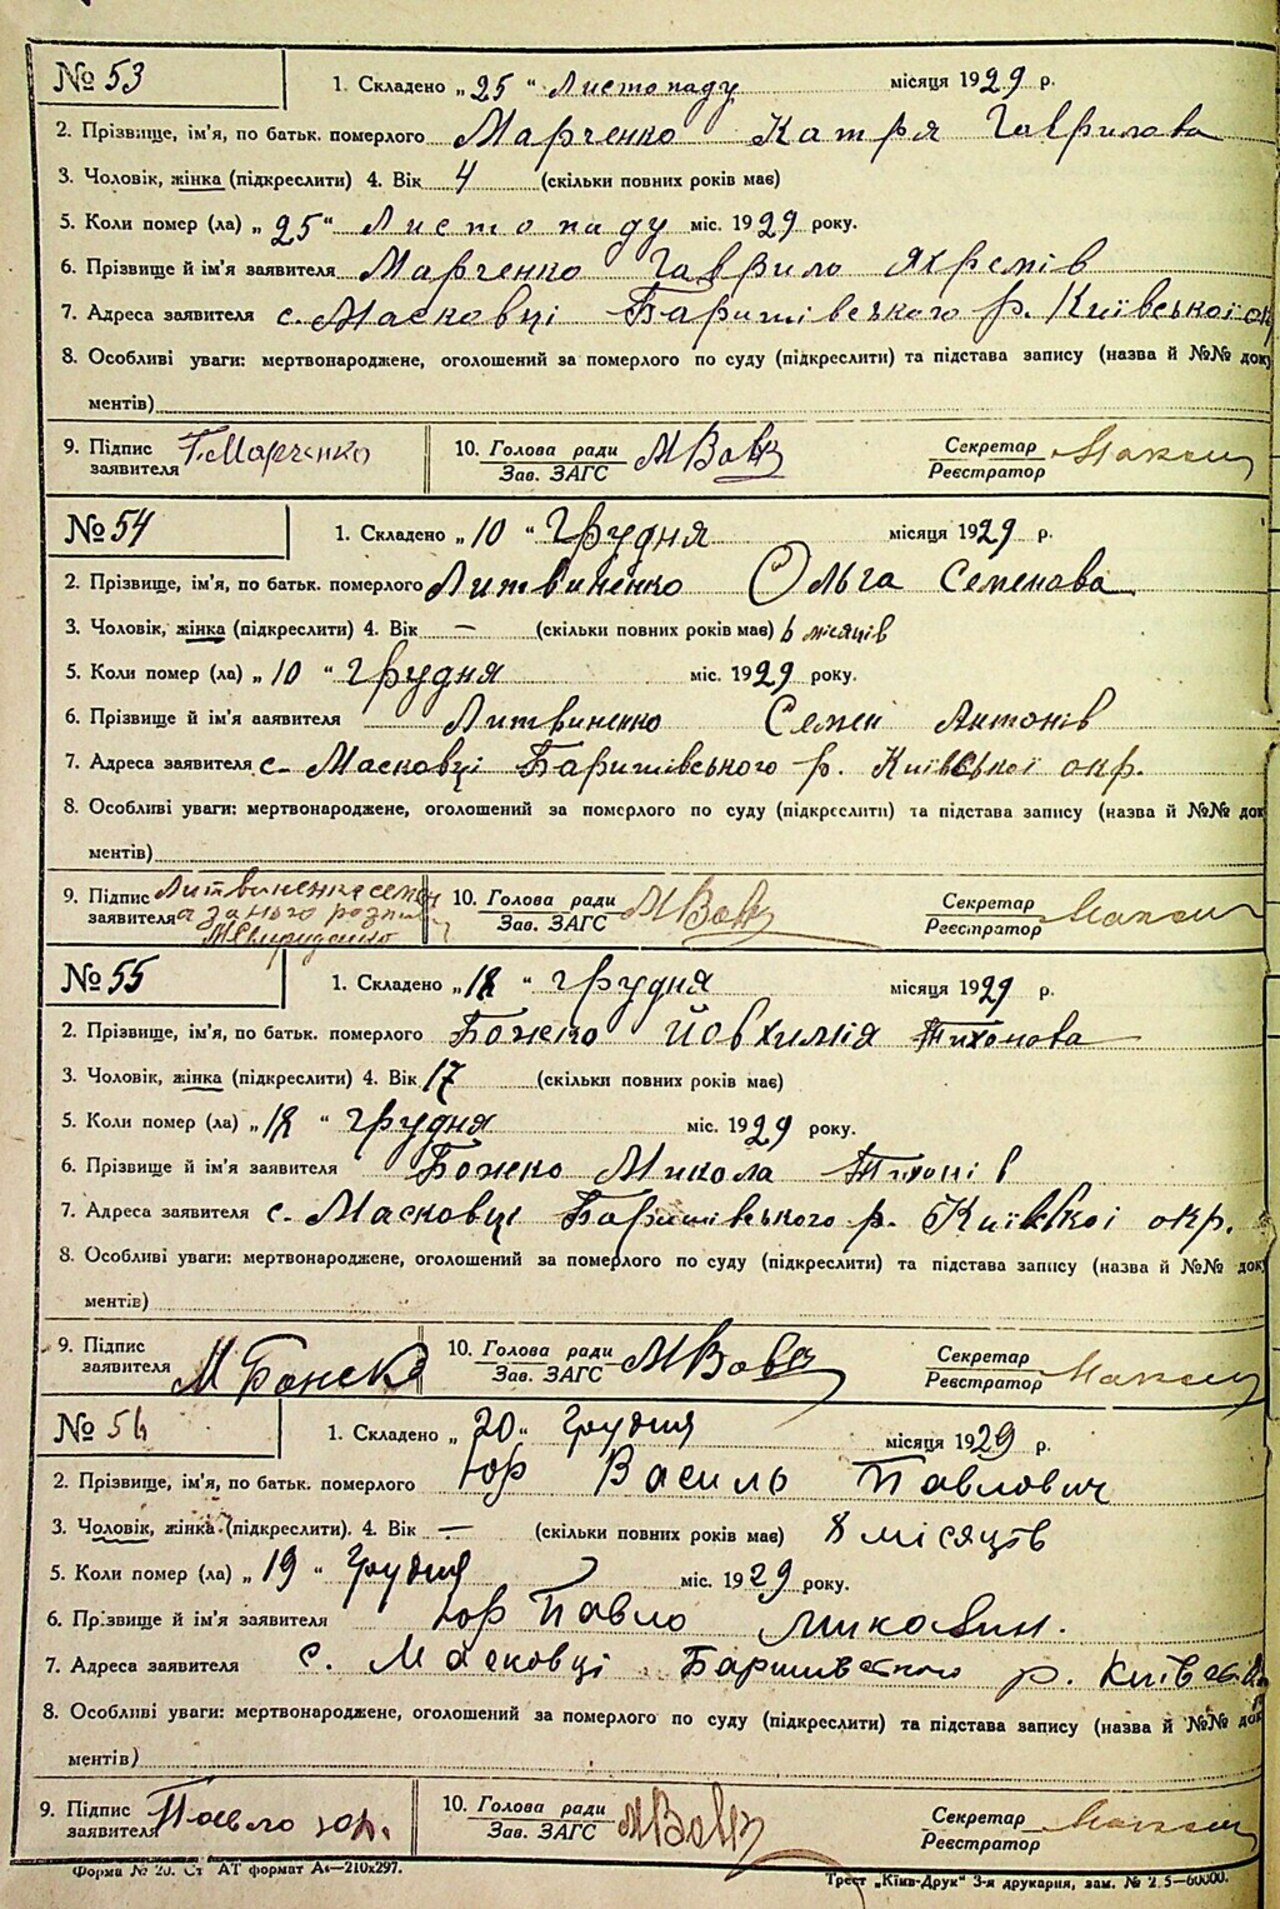 № 53
1. Складено „25“ Листопаду місяця 1929 р.
2. Прізвище, ім’я, по батьк. померлого Марченко Катря Гаврилова
3. Чоловік, жінка (підкреслити) 4. Вік 4 (скільки повних років має)
5. Коли помер (ла) „25“ Листопаду міс. 1929 року.
6. Прізвище й ім’я заявителя Марченко Гаврило Яхремів
7. Адреса заявителя с. Масковці Баришівського р. Київської ок
8. Особливі уваги: мертвонароджене, оголошений за померлого по суду (підкреслити) та підстава запису (назва й №№ доку
ментів)
9. Підпис заявителя Г. Марченко 10. Голова ради Зав. ЗАГС МВовк Секретар Реєстратор
№ 54
1. Складено „10“ Грудня місяця 1929 р.
2. Прізвище, ім’я, по батьк. померлого Литвиненко Ольга Семенова
3. Чоловік, жінка (підкреслити) 4. Вік — (скільки повних років має) 6 місяців
5. Коли помер (ла) „10“ Грудня міс. 1929 року.
6. Прізвище й ім’я заявителя Литвиненко Семен Антонів
7. Адреса заявителя с. Масковці Баришівського р. Київської окр.
8. Особливі уваги: мертвонароджене, оголошений за померлого по суду (підкреслити) та підстава запису (назва й №№ док
ментів)
9. Підпис заявителя Литвиненко семен а за нього 10. Голова ради Зав. ЗАГС МВовк Секретар Реєстратор
№ 55
1. Складено „18“ Грудня місяця 1929 р.
2. Прізвище, ім’я, по батьк. померлого Божко Йовхимія Тихонова
3. Чоловік, жінка (підкреслити) 4. Вік 17 (скільки повних років має)
5. Коли помер (ла) „18“ Грудня міс. 1929 року.
6. Прізвище й ім’я заявителя Божко Микола Тихонів
7. Адреса заявителя с. Масковці Баришівського р. Київської окр.
8. Особливі уваги: мертвонароджене, оголошений за померлого по суду (підкреслити) та підстава запису (назва й №№ доку
ментів)
9. Підпис заявителя М Божко 10. Голова ради Зав. ЗАГС МВовк Секретар Реєстратор
№ 56
1. Складено „20“ Грудня місяця 1929 р.
2. Прізвище, ім’я, по батьк. померлого Юр Василь Павлович
3. Чоловік, жінка (підкреслити). 4. Вік — (скільки повних років має) 8 місяців
5. Коли помер (ла) „19“ Грудня міс. 1929 року.
6. Прізвище й ім’я заявителя Юр Павло
7. Адреса заявителя с. Масковці Баришівского р. Київськ.
8. Особливі уваги: мертвонароджене, оголошений за померлого по суду (підкреслити) та підстава запису (назва й №№ док
ментів)
9. Підпис заявителя Павло Юр. 10. Голова ради Зав. ЗАГС МВовк Секретар Реєстратор
Форма № 20. Ст АТ формат А4—210x297. Трест „Київ-Друк“ 3-я друкарня, зам. № 2 5—60000.